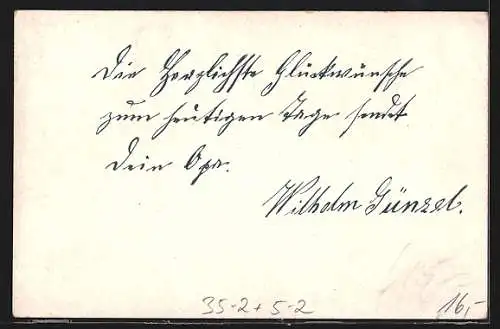 Die Herzlichste Glückwünsche
zum heutigen Tage sendet
Dein Opa.
Wilhelm Günzel.
35-2+5-2
16,-